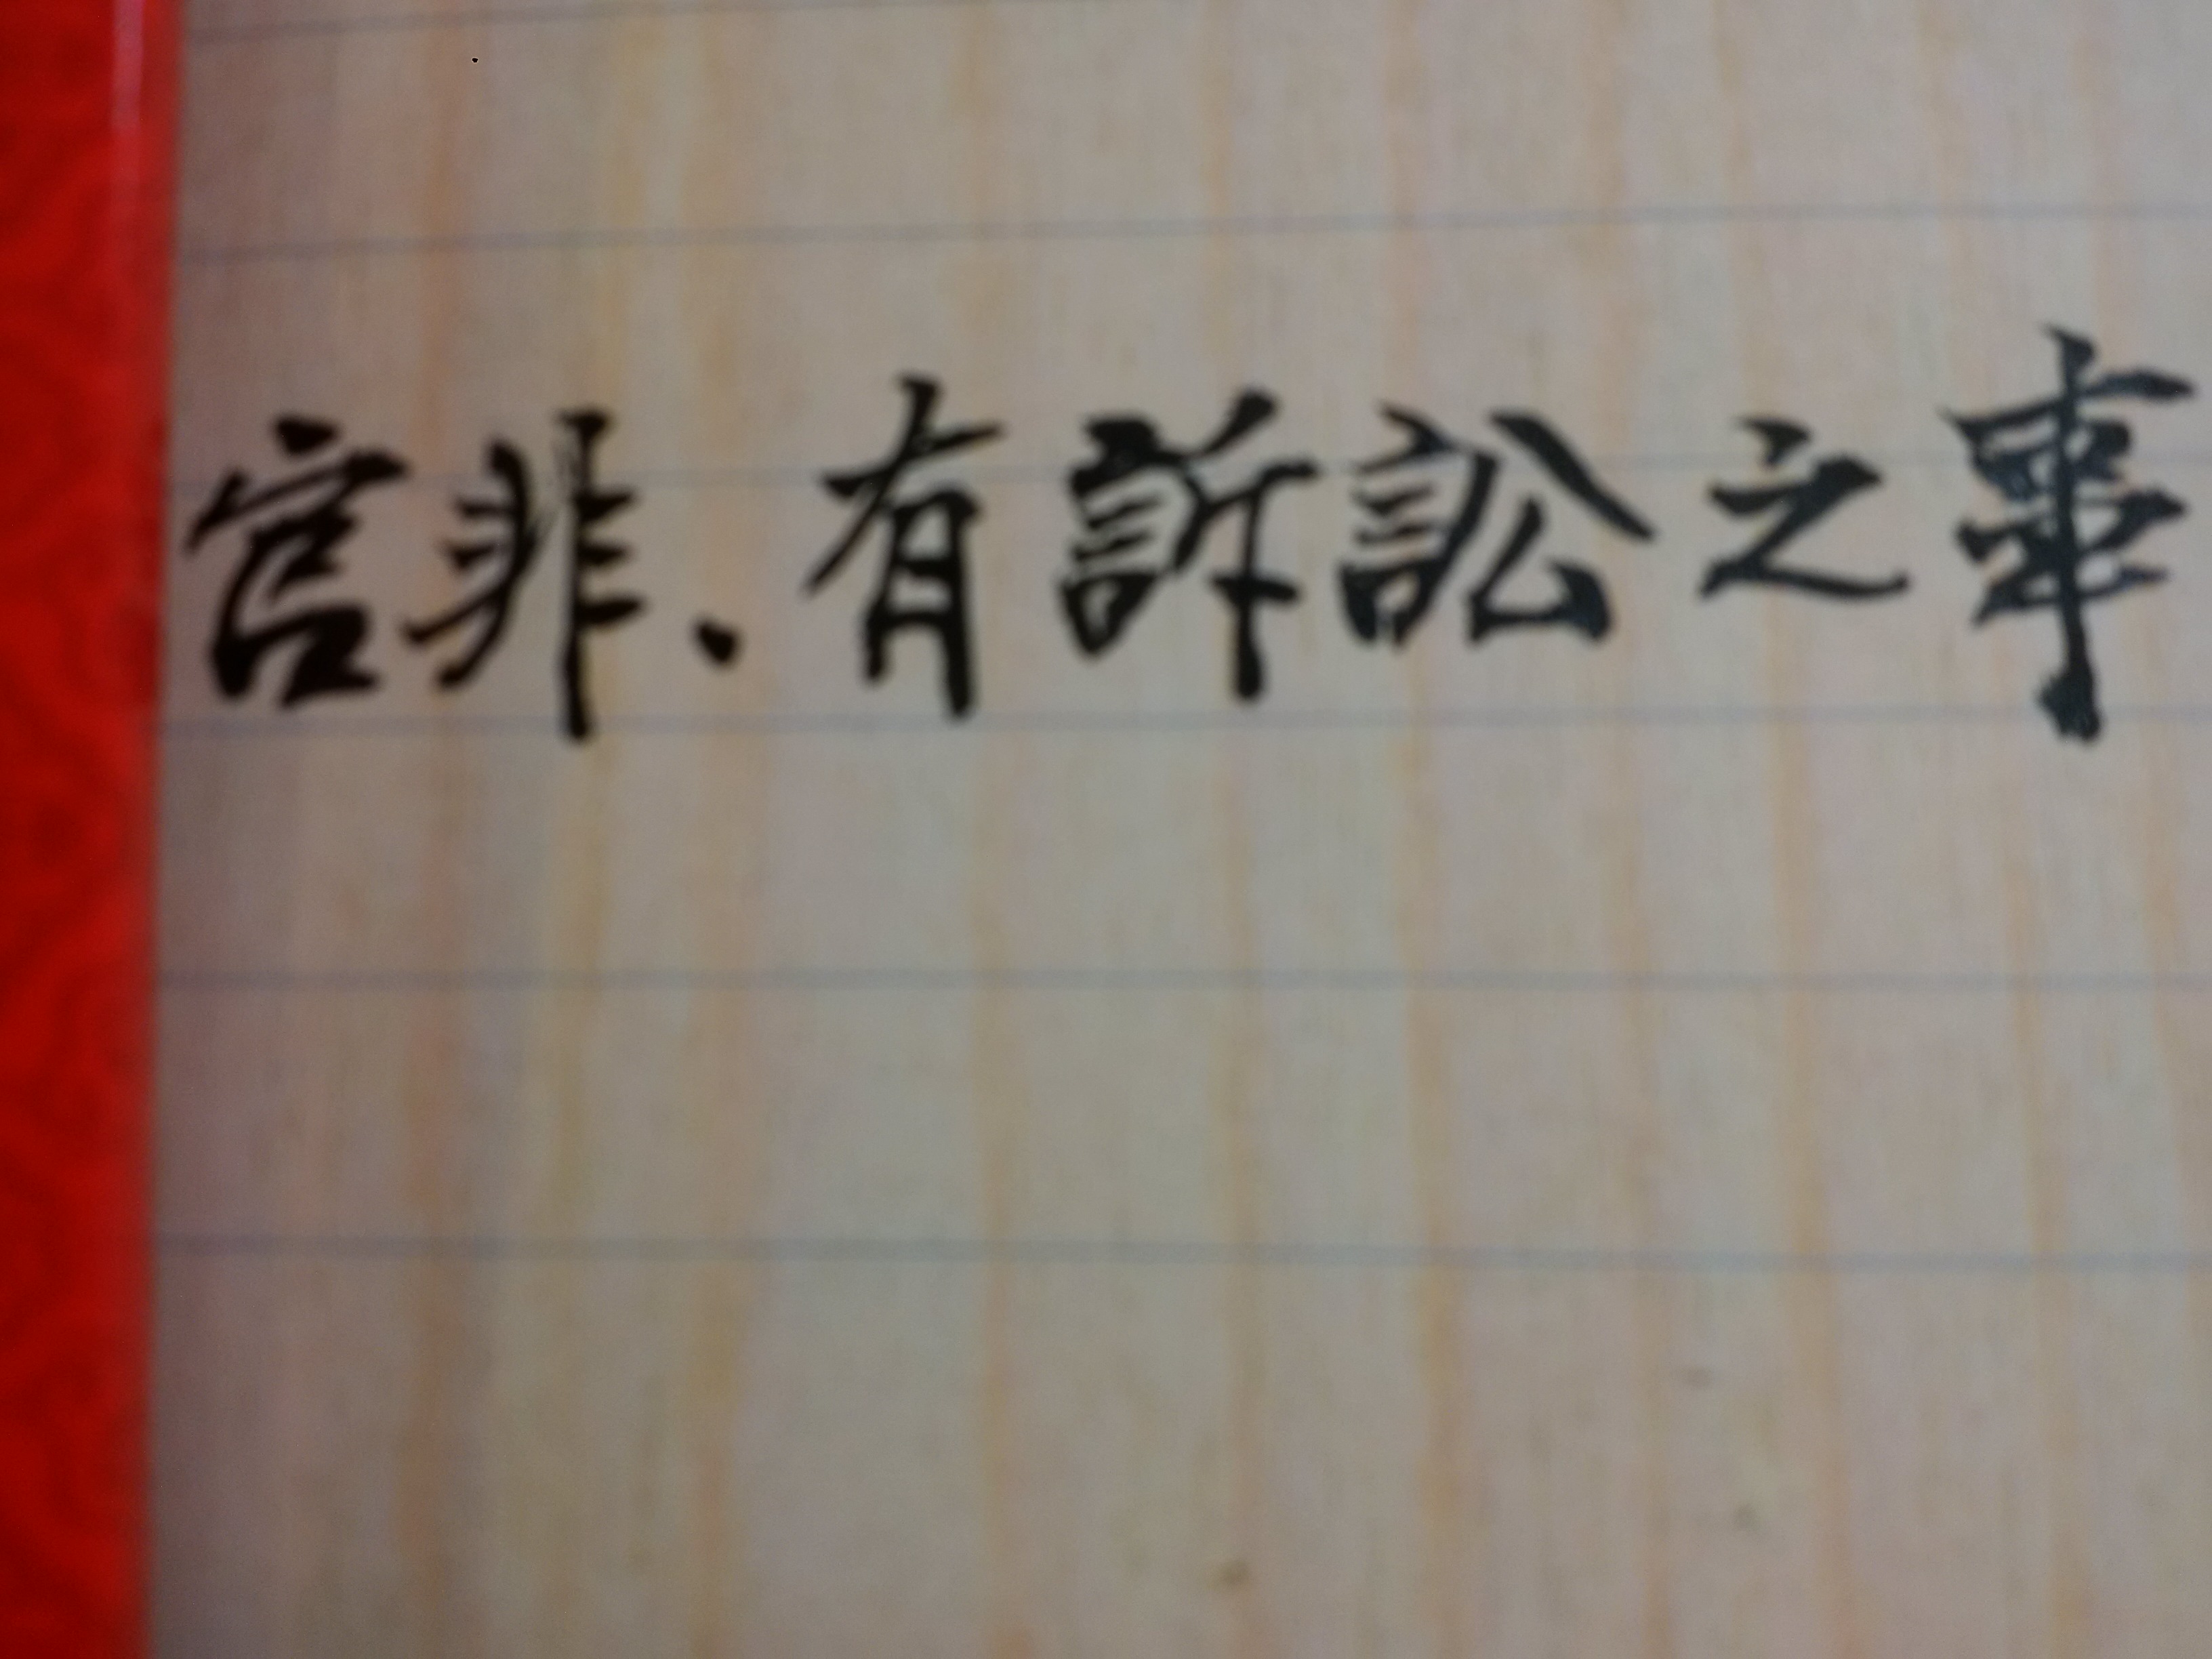 官非、有訴訟之事